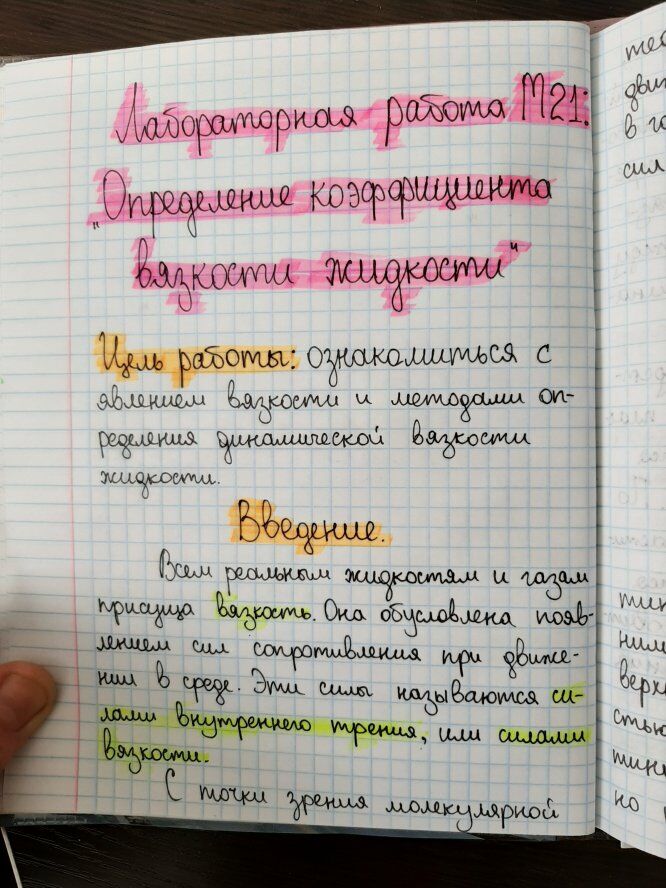 Лабораторная работа М21:
"Определение коэффициента
вязкости жидкости"
Цель работы: ознакомиться с
явлением вязкости и методами оп-
ределения динамической вязкости
жидкости.
Введение.
Всем реальным жидкостям и газам
присуща вязкость. Она обусловлена появ-
лением сил сопротивления при движе-
нии в среде. Эти силы называются си-
лами внутреннего трения, или силами
вязкости.
С точки зрения молекулярной
тео
движ
в га
сил
тин
ним
верх
стью
тин
но